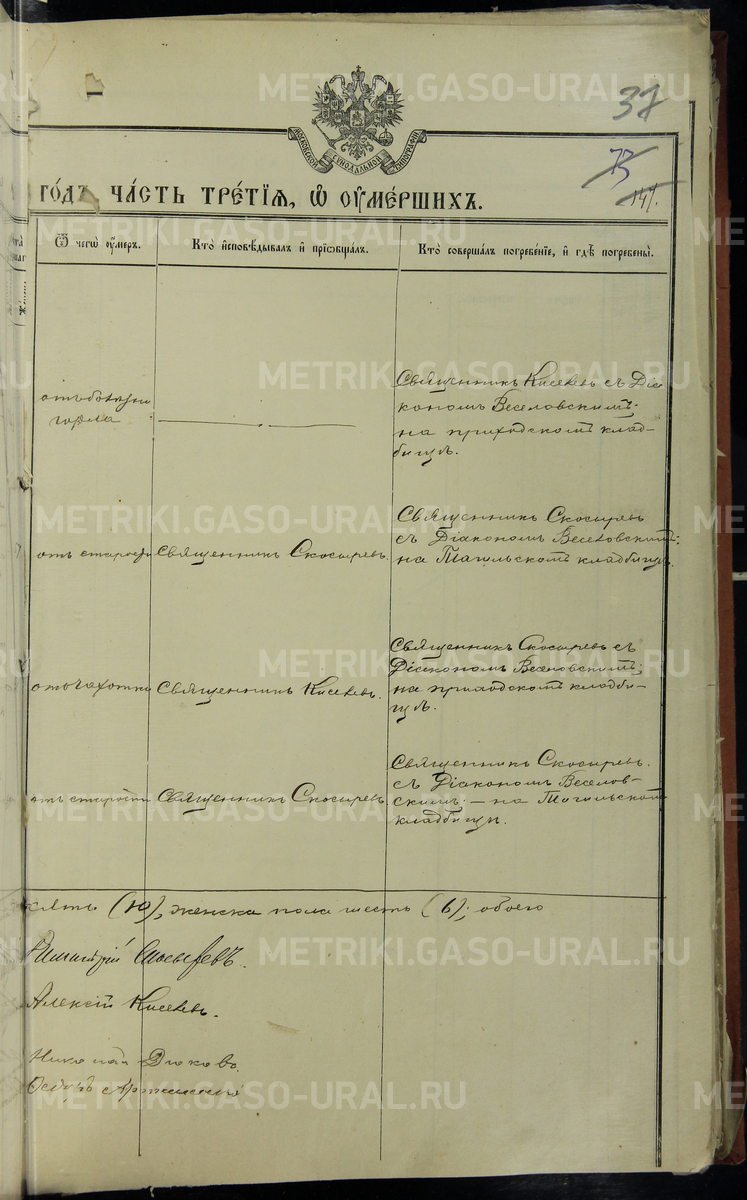 37
73
147.
МОСКОВСКОЙ СѴНОДАЛЬНОЙ ТИПОГРАФІИ
ГО́ДЪ ЧА́СТЬ ТРЕ́ТІЯ, Ѡ҆ ОУ҆МЕ́РШИХЪ.
Ѿ чегѡ̀ оу҆́меръ.
Кто̀ и҆сповѣ́дывалъ и҆ прїѡбща́лъ.
Кто̀ соверша́лъ погребе́нїе, и҆ гдѣ̀ погребены̀.
отъ болѣзни
горла
Священникъ Киселевъ съ Діа
кономъ Веселовскимъ;
на приходскомъ клад-
бищѣ.
отъ старости
Священникъ Скосыревъ
Священникъ Скосыревъ
съ Діакономъ Веселовскимъ;
на Тагильскомъ кладбищѣ.
отъ чахотки
Священникъ Киселевъ.
Священникъ Скосыревъ съ
Діакономъ Веселовскимъ;
на приходскомъ кладби-
щѣ.
отъ старости
Священникъ Скосыревъ
Священникъ Скосыревъ
съ Діакономъ Веселов-
скимъ; – на Тагильскомъ
кладбищѣ.
(10), женска пола шесть (6); обоего
Димитрій Скосыревъ.
Алексій Киселевъ.
Николай
METRIKI.GASO-URAL.RU